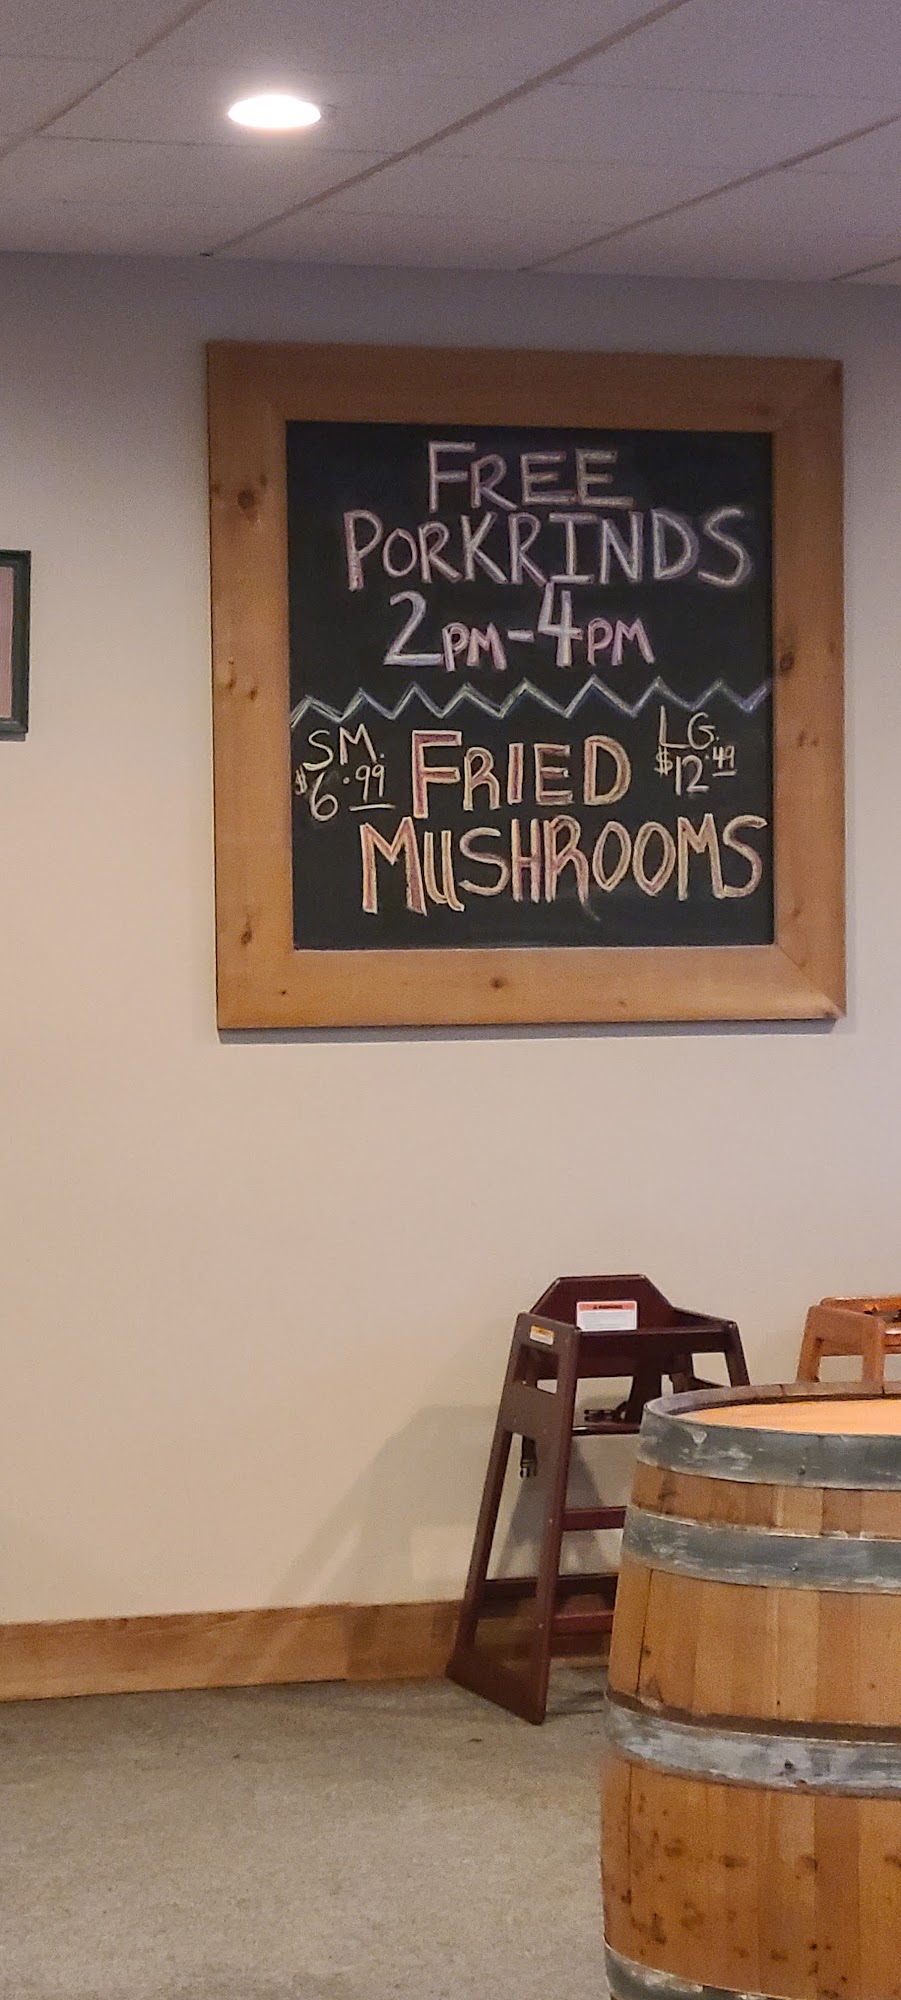 FREE
PORKRINDS
2PM-4PM
SM. FRIED LG.
$6.99 $12.49
MUSHROOMS
WARNING